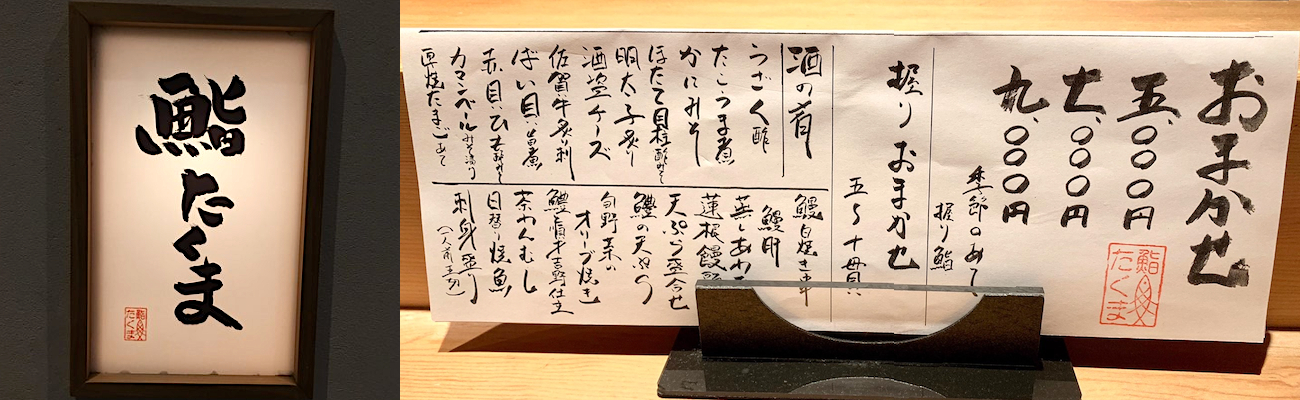 鮨たくま
鮨
たくま
おまかせ
五、〇〇〇円
七、〇〇〇円
九、〇〇〇円
鮨
たくま
季節のあて
握り鮨
握りおまかせ
五〜十貫
酒の肴
うざく酢
たこうま煮
かにみそ
ほたて貝柱
明太子炙り
酒盗チーズ
佐賀牛炙り刺
ばい貝旨煮
赤貝ひも
カマンベールみそ漬り
直焼たまごあて
鰻白焼き
鰻肝
蓮根饅頭
天ぷら盛合せ
鱧の天ぷら
旬野菜の
オリーブ焼き
茶わんむし
日替り焼魚
刺身盛り